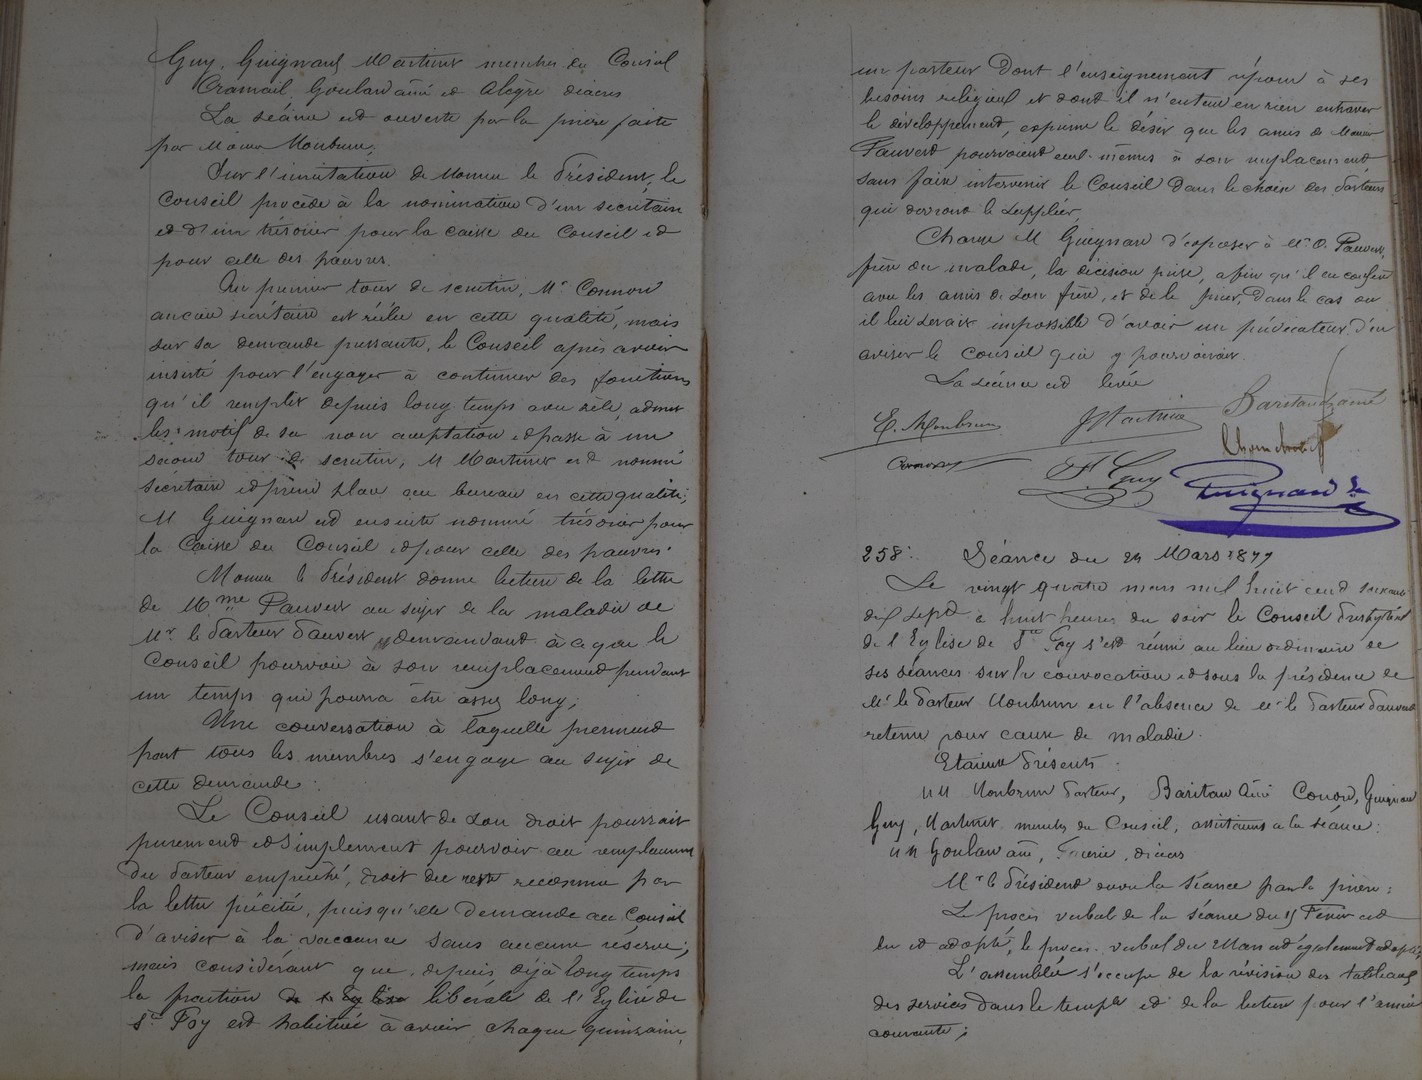 Guy, Guignard, Martinet membres du Conseil
Cramail, Goulard aîné et Alègre diacres
La séance est ouverte par la prière faite
par Monsieur Monbrun.
Sur l'invitation de Monsieur le Président, le
Conseil procède à la nomination d'un secrétaire
et d'un trésorier pour la caisse du Conseil et
pour celle des pauvres.
Au premier tour de scrutin, Mr Connord
ancien secrétaire est réélu en cette qualité, mais
sur sa demande pressante, le Conseil après avoir
insisté pour l'engager à continuer des fonctions
qu'il remplit depuis long temps avec zèle, admet
les motif de sa non aceptation et passe à un
second tour de scrutin, M Martinet est nommé
secrétaire et prend place au bureau en cette qualité;
M Guignard est ensuite nommé trésorier pour
la Caisse du Conseil et pour celle des pauvres.
Monsieur le Président donne lecture de la lettre
de Mme Pauvert au sujet de la maladie de
Mr le Pasteur Pauvert, demandant à ce que le
Conseil pourvoie à son remplacement pendant
un temps qui pourra être assez long;
Une conversation à laquelle prennent
part tous les membres s'engage au sujet de
cette demande.
Le Conseil usant de son droit pourrait
purement et simplement pourvoir au remplacement
du Pasteur empêché, droit du reste reconnu par
la lettre précitée, puisqu'elle demande au Conseil
d'aviser à la vacance sans aucune réserve;
mais considérant que, depuis déjà long temps
la fraction de l'Eglise libérale de l'Eglise de
Ste Foy est habituée à avoir chaque quinzaine,
un pasteur dont l'enseignement répond à ses
besoins religieux et dont il n'entend en rien entraver
le développement, exprime le désir que les amis de Monsieur
Pauvert pourvoient eux-mêmes à son remplacement
sans faire intervenir le Conseil dans le choix des Pasteurs
qui devront le suppléer.
Charge M Guignard d'exposer à Mr O. Pauvert,
frère du malade, la décision prise, afin qu'il en confère
avec les amis de son frère, et de le prier, dans le cas où
il lui serait impossible d'avoir un prédicateur d'en
aviser le Conseil qui y pourvoirait.
La séance est levée
E. Monbrun J Martinet Baritaud aîné
Connord Ft Guy
Guignard
258. Séance du 24 Mars 1877
Le vingt quatre mars mil huit cent soixante
dix sept à huit heures du soir le Conseil Presbytéral
de l'Eglise de Ste Foy s'est réuni au lieu ordinaire de
ses séances sur la convocation et sous la présidence de
Mr le Pasteur Monbrun en l'absence de Mr le Pasteur Pauvert
retenu pour cause de maladie.
Etaient Présents:
MM Monbrun Pasteur, Baritaud aîné Conord, Guignard
Guy, Martinet membres du Conseil; assistaient à la séance:
MM Goulard aîné, diacres
Mr le Président ouvre la séance par la prière:
Le procès verbal de la séance du Février est
lu et adopté, le procès-verbal du Mars est également adopté,
L'assemblée s'occupe de la révision des tableaux
des services dans le temple et de la lecture pour l'année
courante;